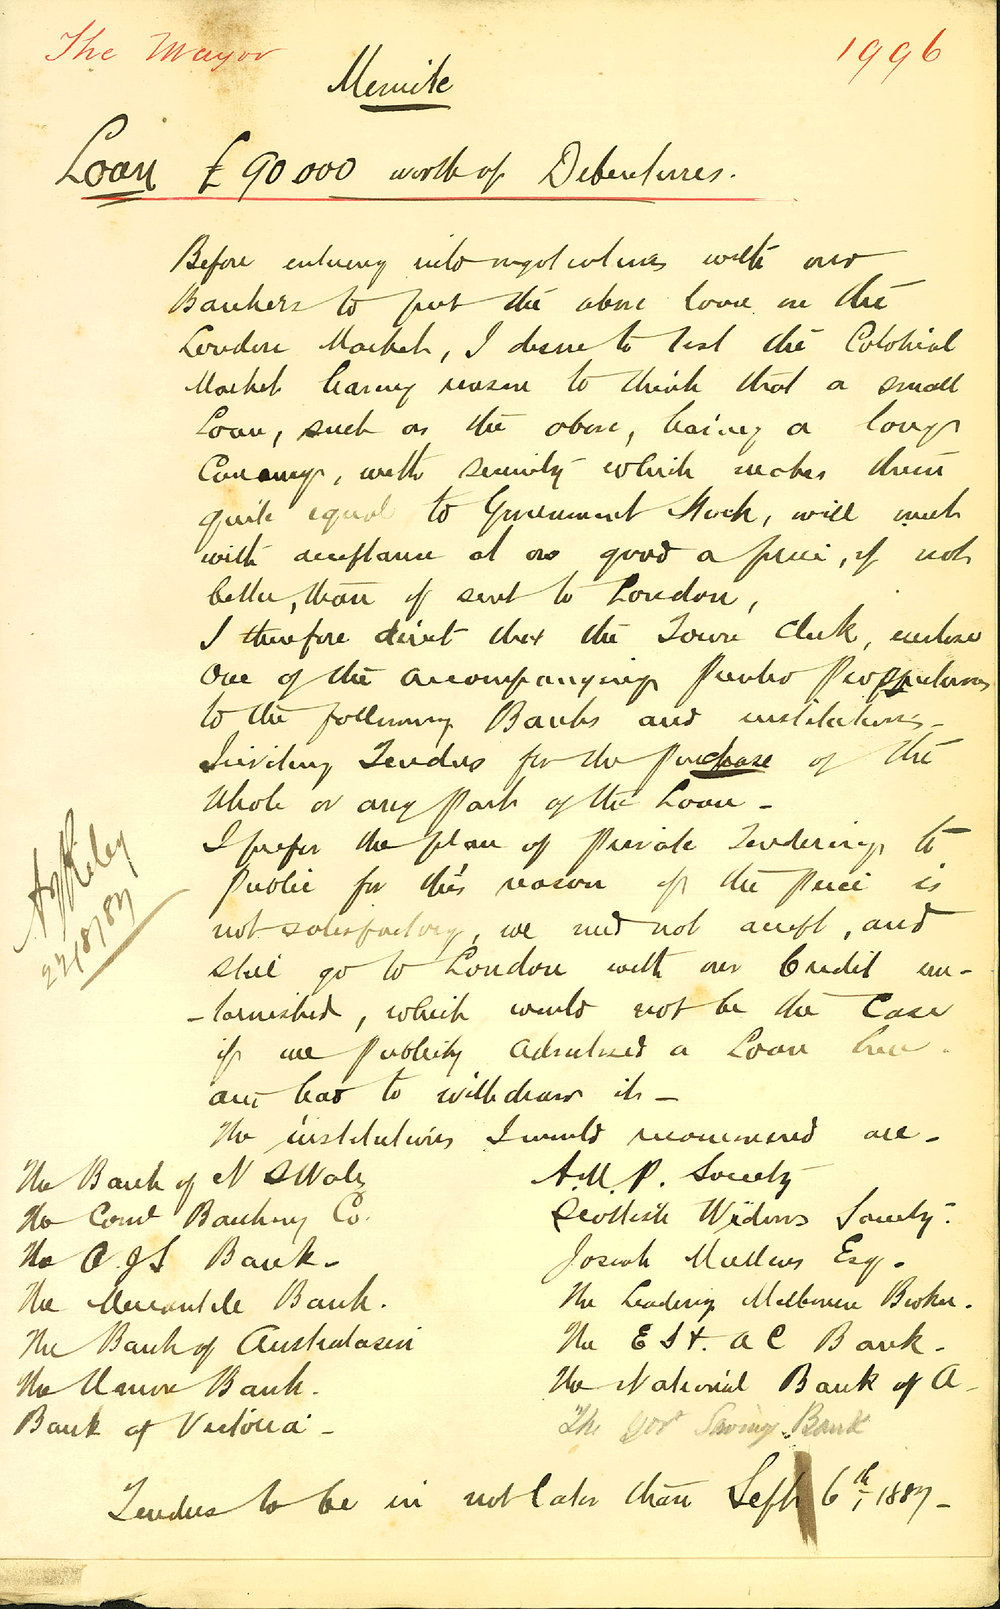 The Mayor
1996
Minute
Loan £90,000 worth of Debentures.
Before entering into negotiations with our
Bankers to put the above loan on the
London Market, I desire to test the Colonial
Market having reason to think that a small
Loan, such as the above, having a long
Currency, with security which makes them
quite equal to Government Stock, will meet
with acceptance at as good a price, if not
better, than if sent to London,
I therefore direct that the Town Clerk, enclose
One of the accompanying Prospectuses
to the following Banks and institutions -
Inviting Tenders for the purchase of the
Whole or any Part of the Loan -
I prefer the plan of Private Tendering, to
Public for this reason if the Price is
not satisfactory, we need not accept, and
still go to London with our Credit un-
- tarnished, which would not be the Case
if we Publicly advertised a Loan here.
and had to withdraw it -
The institutions I would recommend are -
The Bank of N S Wales
The Coml Banking Co.
The C.J.S Bank -
The Mercantile Bank.
The Bank of Australasia
The Union Bank.
Bank of Victoria -
A.M.P. Society
Scottish Widows Society.
Josiah Mullens Esq.
The Leading Melbourne Broker.
The E S & A C Bank -
The National Bank of A -
The Govt Savings Bank
Tenders to be in not later than Sept 6th, 1887 -
A J Riley
22/8/87